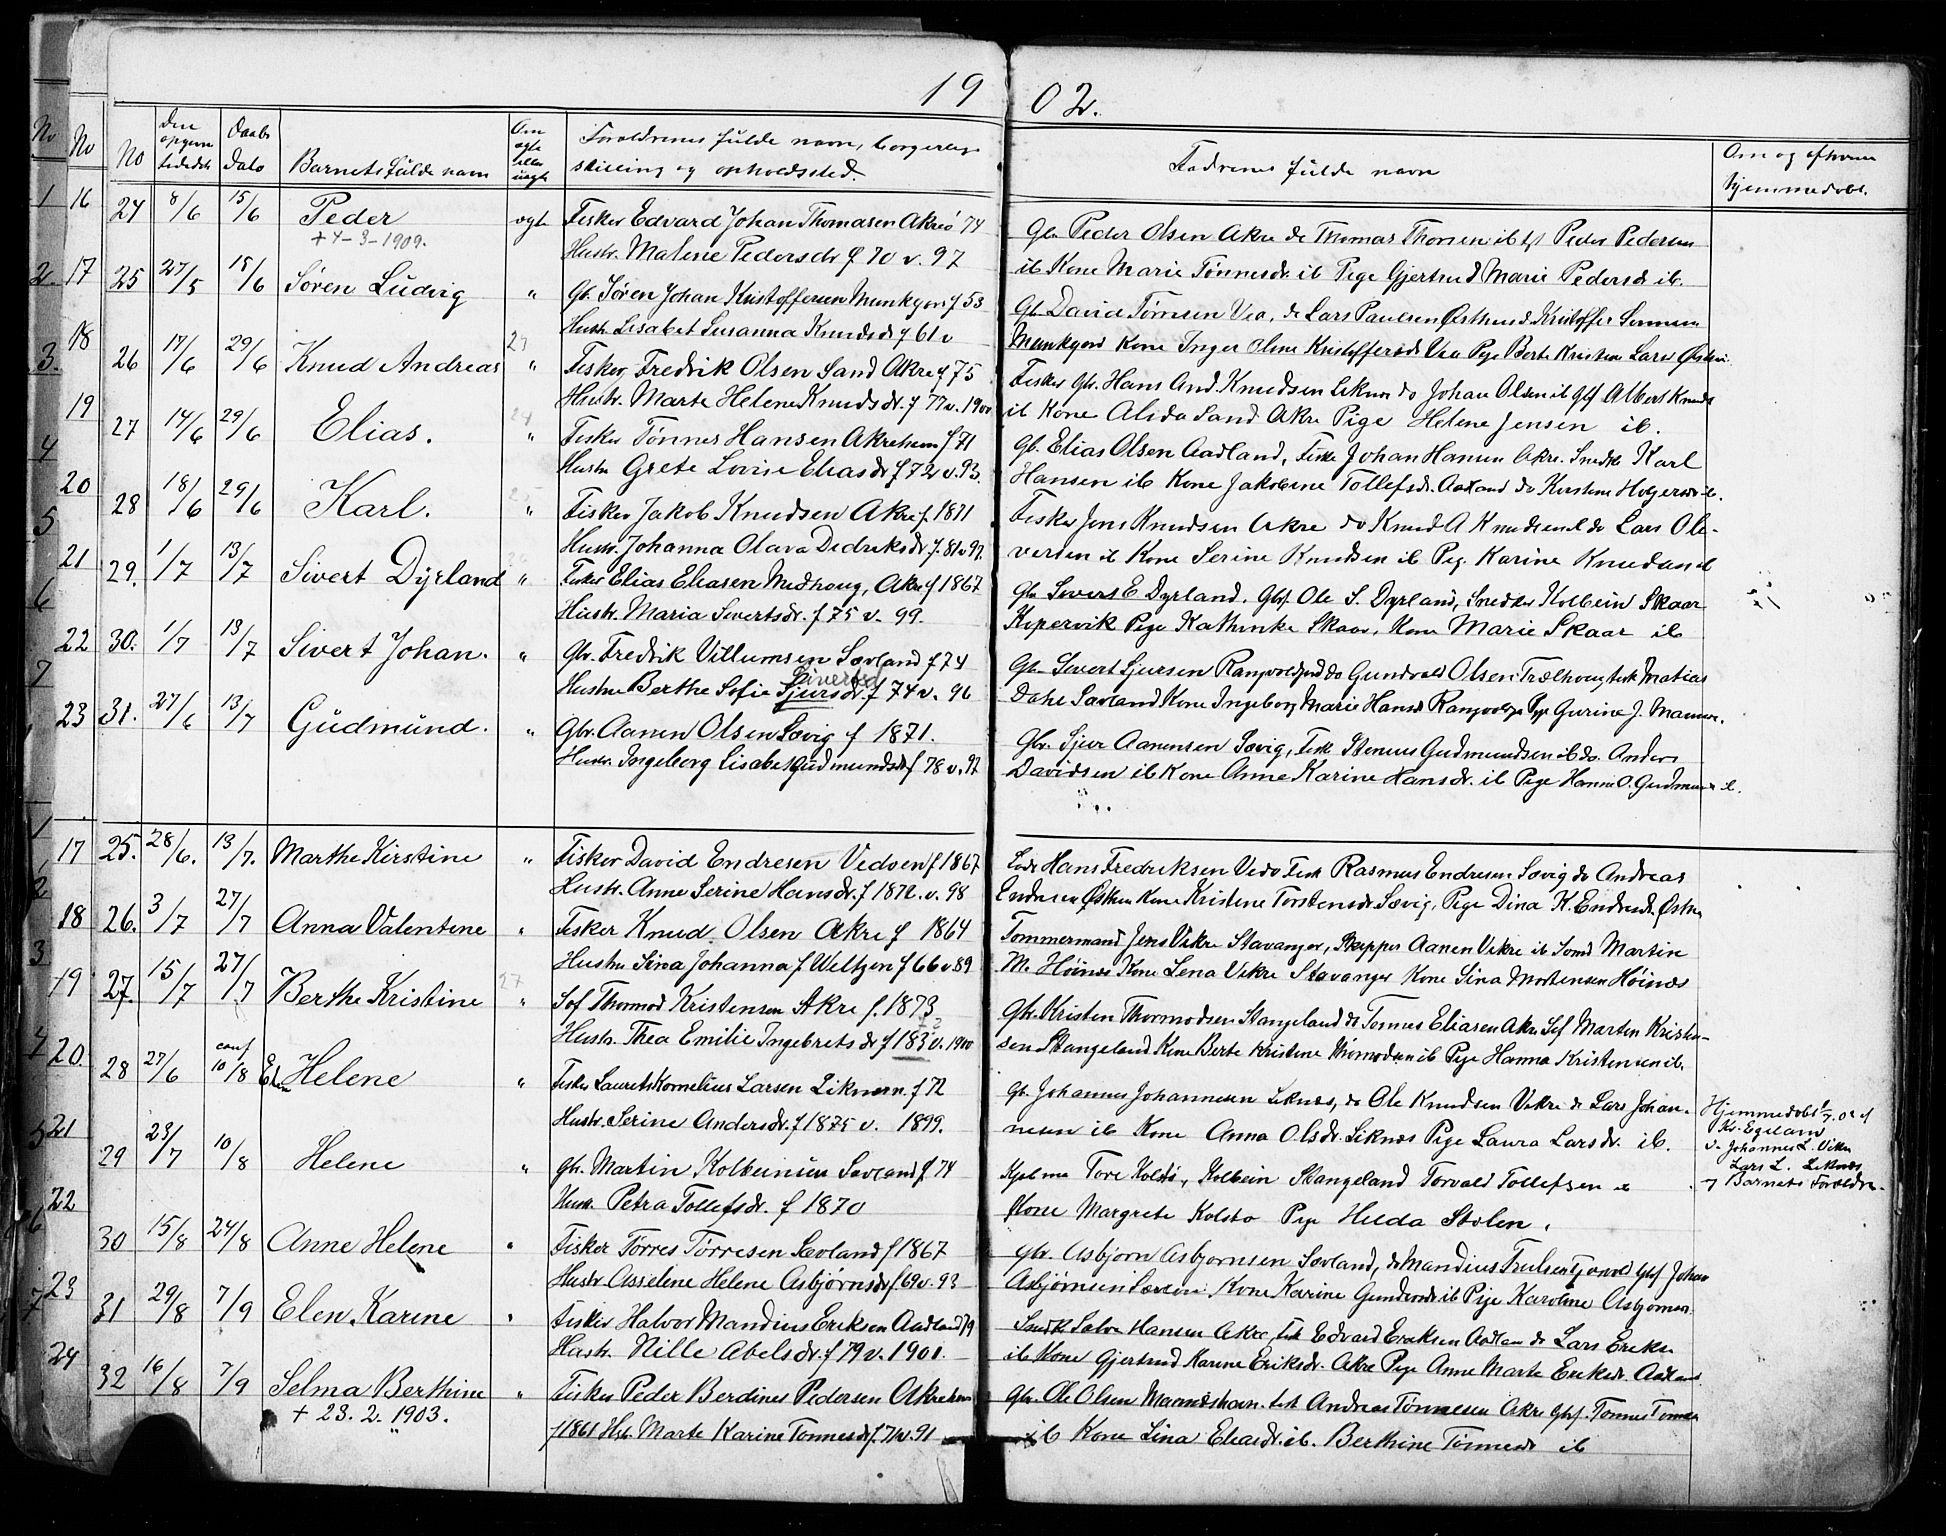 19 02.
No No No Den opgivne fødedato Daabs Dato Barnets fulde navn Om ægte eller uægte Forældrenes fulde navn, borgerlige stilling og opholdssted. Fadrenes fulde navn Om og af hvem hjemmedøbt.
1 16 24 8/6 15/6 Peder ægte Fisker Edvard Johan Thomasen Akre 74
+ 4-3-1909. Hustr. Malene Pedersdr f 70 v. 97
Gbr Peder Olsen Akre do Thomas Thorsen ib Peder Pedersen
ib Kone Marie Tønnesdr. ib Pige Gjertrud Marie Pedersdr ib.
2 17 25 27/5 15/6 Søren Ludvig " Gb. Søren Johan Kristoffersen Munkejord f 53
Hustr. Lisabet Susanna Knudsdr f 61 v
Gb David Tønnsen Vea, do Lars Paulsen Østhus do Kristoffer Sørensen
Munkejord Kone Inger Oline Kristoffersdr Vea Pige Berte Kristine Larsd
3. 18 26 17/6 29/6 Knud Andreas " Fisker Fredrik Olsen Sand Akre f 75
Hustr. Marte Helene Knudsdr. f 77 v. 1900
Fisker Gbr. Hans And. Knudsen Liknes do Johan Olsen ib Gbf Albert Knuds
ib Kone Alida Sand Akre Pige Helene Jensen ib.
4 19 27 14/6 29/6 Elias. 24 " Fisker Tønnes Hansen Akrehavn f 71
Hustr Grete Lovise Eliasdr f 72 v. 93.
Gb. Elias Olsen Aadland, Fisk Johan Hansen Akre. Snedk Karl
Hansen ib Kone Jakobine Tollefsdr. Aadland do Kirstine Holgersdr ib.
5 20 28 18/6 29/6 Karl. 25 " Fisker Jakob Knudsen Akre f. 1871
Hustr. Johanna Olava Didriksdr f. 81 v 99.
Fisker Jens Knudsen Akre do Knud A Knudsen ib do Lars Ole-
versen ib Kone Serine Knudsen ib Pig. Karine Knudsen ib
6 21 29. 1/7 13/7 Sivert Dyrland " Fisker Elias Eliasen Medhoug, Akre f 1867
Hustr. Maria Sivertsdr. f 75 v. 99.
Gbr Sivert E Dyrland. Gbf. Ole S. Dyrland, Snedker Kolbein Skaar
Kopervik Pige Kathinka Skaar, Kone Marie Skaar ib
7 22 30. 1/7 13/7 Sivert Johan. " Gbr. Fredrik Villumsen Sævland f 74
Sivertsd
Hustru Berthe Sofie Sjursdr. f 74 v. 96
Gbr Sivert Sjursen Rangvoldsjord do Gundvald Olsen Trælhoug Fisk Matias
Dahl Sævland Kone Ingeborg Marie Hansd Pige Gurine J.
23 31. 27/6 13/7 Gudmund. " Gbr. Aanen Olsen Sævig f 1871.
Hustr. Ingeborg Lisabet Gudmundsdr f 78 v. 97
Gbr. Sjur Aanensen Sævig, Fisk Stenius Gudmundsen ib do. Anders
Davidsen ib Kone Anne Karine Hansdr. ib Pige Hanna O. Gudmun ib.
1 17 25. 28/6. 13/7. Marthe Kirstine " Fisker David Endresen Vedøen f 1867
Hustr. Anne Serine Hansdr. f 1872. v. 98
Hans Fredriksen Vedø Fisk Rasmus Endresen Sævig do Andreas
Endresen Østhus Kone Kristine Torstensdr Sævig, Pige Dina K. Endresdr.
2 18 26. 3/7 27/7 Anna Valentine " Fisker Knud Olsen Akre f 1864
Hustru Sina Johanna f Weltzen f 66 v 89
Tømmermand Jens Vikre Stavanger, Skipper Aanen Vikre ib Martin
M. Høines Kone Lena Vikre Stavanger Kone Sina Mortensen Høines
3 19 27. 15/7 27/7 Berthe Kristine 27 " Søf Thormod Kristensen Akre f. 1873
Hustr. Thea Emilie Ingebretsdr f v. 1900
Gbr. Kristen Thormodsen Stangeland do Tønnes Eliasen Akre Søf Marten Kristen-
sen Stangeland Kone Berte Kristine ib Pige Hanna Kristensen ib.
4 20. 28 27/6 conf 10/8 Elen Helene " Fisker Laurets Kornelius Larsen Liknesn. f 72
Hustr. Serine Andersdr. f 1875 v. 1899.
Gb. Johannes Johannesen Liknes, do Ole Knudsen Vikre do Lars Johan-
nesen ib Kone Anna Olsdr. Liknes Pige Laura Larsdr. ib.
Hjemmedøbt 1/7. 02 af
Kr. Egeland
v. Johannes L. Vikre
Lars L. Liknes
og Barnets Forældre.
5 21 29 23/7 10/8 Helene " Gb. Martin Kolbeinsen Sævland f 74
Hustr. Petra Tollefsdr. f 1870
Kjøbma Tore Kolstø, Kolbein Stangeland Torvald Tollefsen
Kone Margrete Kolstø Pige Hilda Stolen.
6 22 30 15/8 24/8 Anne Helene " Fisker Torres Tørresen Sævland f 1867
Hustr. Asselene Helene Asbjørnsdr f. 69 v. 93
Gbr. Asbjørn Asbjørnsen Sævland, do Mandius Trulsen Gbf Johan
Asbjørnsen Sævland Kone Karine Gundersdr ib Pige Karoline Asbjørnsen
7 23 31 29/8 7/9 Elen Karine " Fisker Halvor Mandius Eriksen Aadland 79
Hustr. Nille Abelsdr. f 79 v. 1901.
Snedk Salve Hansen Akre, Fisk Edvard Eriksen Aadland do Lars Eriks
ib Kone Gjertrud Karine Eriksdr. Akre Pige Anne Marte Eriksdr. Aadland
24 32 16/8 7/9 Selma Berthine " Fisker Peder Berdines Pedersen Akrehavn
+ 23. 2. 1903. f 1861 Hst. Marte Karine Tønnesdr f. 71 v. 91
Gbr. Ole Olsen Mannæshavn. Fisk Andreas Tønnesen Akre Gbf. Tønnes Tønnes
ib Kone Lina Eliasdr. ib. Berthine Tønnesdr ib